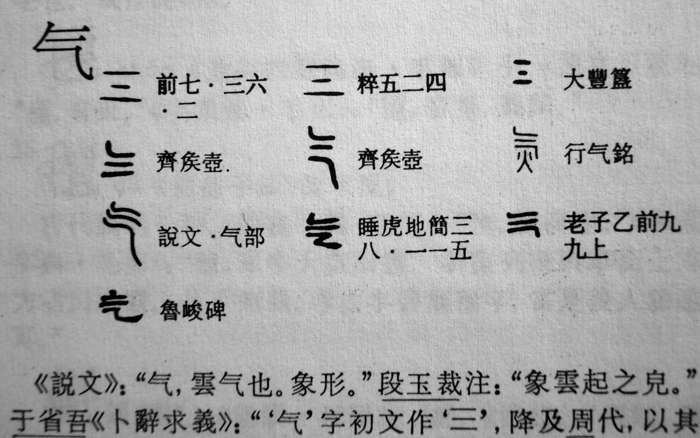 气
前七·三六·二
粹五二四
大豐簋
齊矦壺.
齊矦壺
行气銘
說文·气部
睡虎地簡三八·一一五
老子乙前九九上
魯峻碑
《説文》:“气,雲气也。象形。”段玉裁注:“象雲起之皃。”
于省吾《卜辭求義》:“‘气’字初文作‘三’,降及周代,以其